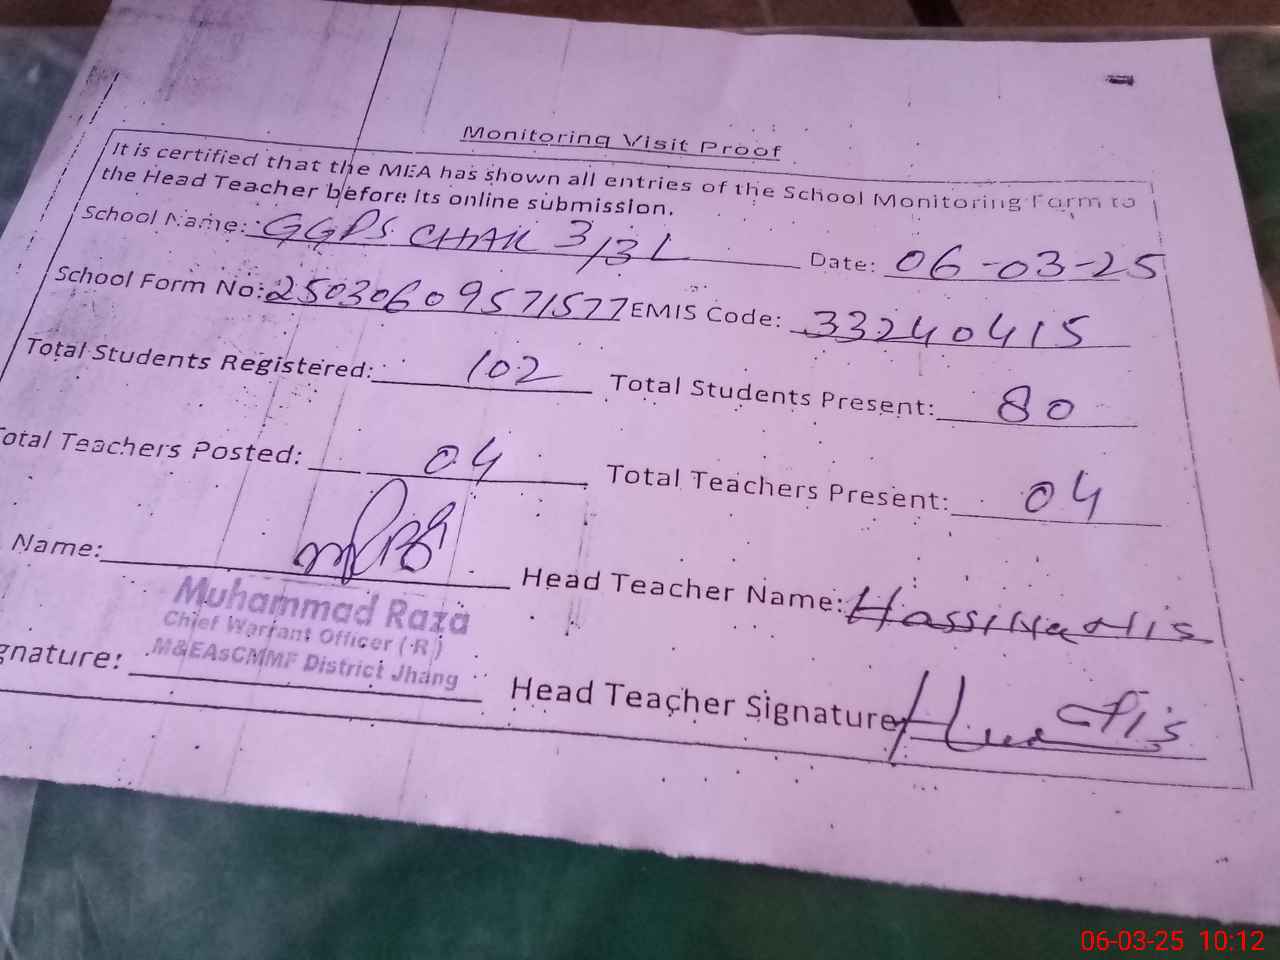 Monitoring Visit Proof
It is certified that the MEA has shown all entries of the School Monitoring Form to
the Head Teacher before its online submission.
School Name: GGPS CHAK 3/3L Date: 06-03-25
School Form No: 25030609571577 EMIS Code: 33240415
Total Students Registered: 102 Total Students Present: 80
otal Teachers Posted: 04 Total Teachers Present: 04
Name: Head Teacher Name: Hassina
Muhammad Raza
Chief Warrant Officer (R)
M&EAsCMMF District Jhang
gnature: Head Teacher Signature
06-03-25 10:12